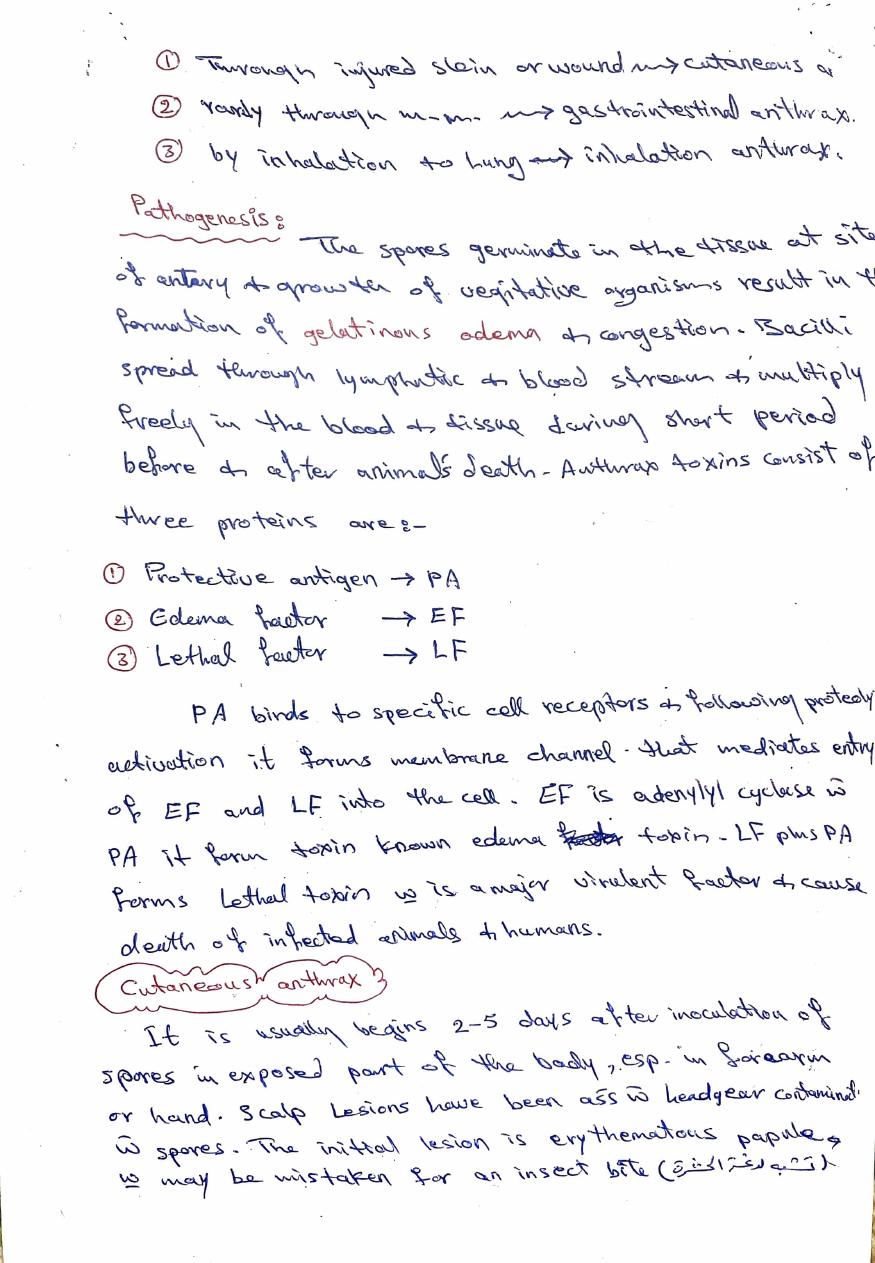 ① Through injured skin or wound → cutaneous a
② rarely through m.m. → gastrointestinal anthrax.
③ by inhalation to Lung → inhalation anthrax.
Pathogenesis:
The spores germinate in the tissue at site
of entery & growth of vegitative organisms result in t
formation of gelatinous odema & congestion. Bacilli
spread through lymphatic & blood stream & multiply
freely in the blood & tissue during short period
before & after animal's death. Anthrax toxins consist of
three proteins are:-
① Protective antigen → PA
② Edema factor → EF
③ Lethal factor → LF
PA binds to specific cell receptors & following proteoly
activation it forms membrane channel. that mediates entry
of EF and LF into the cell. EF is adenylyl cyclase w̄
PA it form toxin known edema toxin. LF plus PA
forms Lethal toxin w is a major virulent factor & cause
death of infected animals & humans.
Cutaneous anthrax
It is usually begins 2-5 days after inoculation of
spores in exposed part of the body, esp. in forearm
or hand. Scalp Lesions have been ass w̄ headgear contaminat.
w̄ spores. The initial lesion is erythematous papule,
w may be mistaken for an insect bite (تشبه لدغة الحشرة)